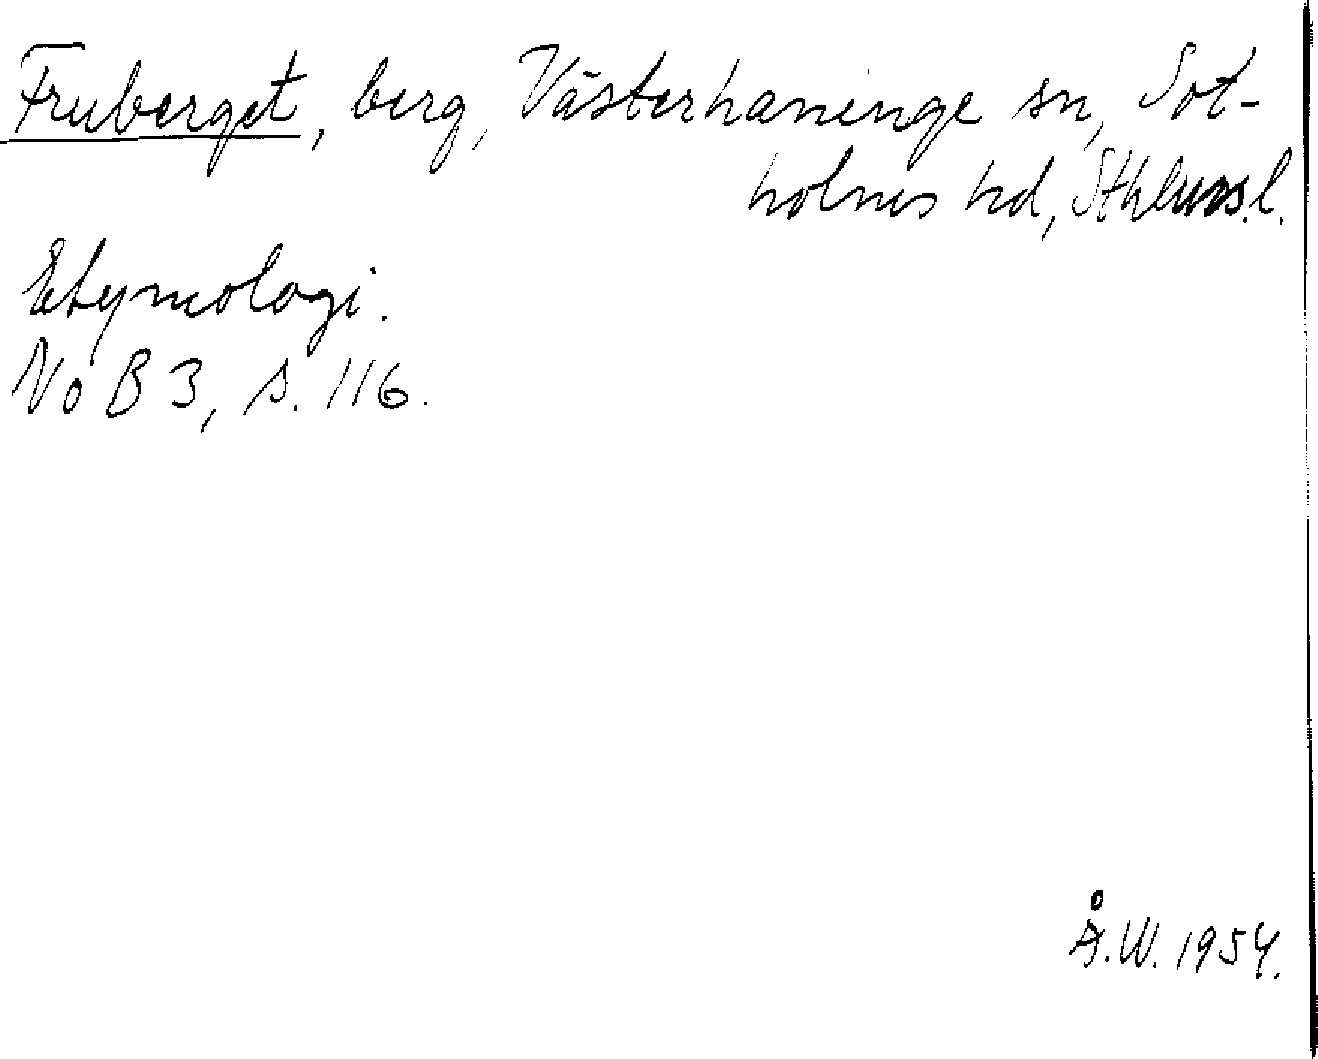 Fruberget, berg, Västerhaninge sn, Sot-
holms hd, Sthlms l.
Etymologi.
NoB 3, s. 116.
Å.W. 1954.